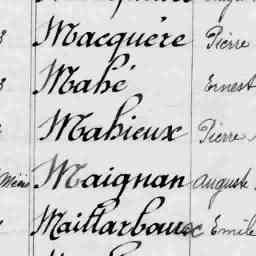 Macquére Pierre
Mahé Ernest
Mahieux Pierre
Maignan Auguste
Maillarbaux Emile